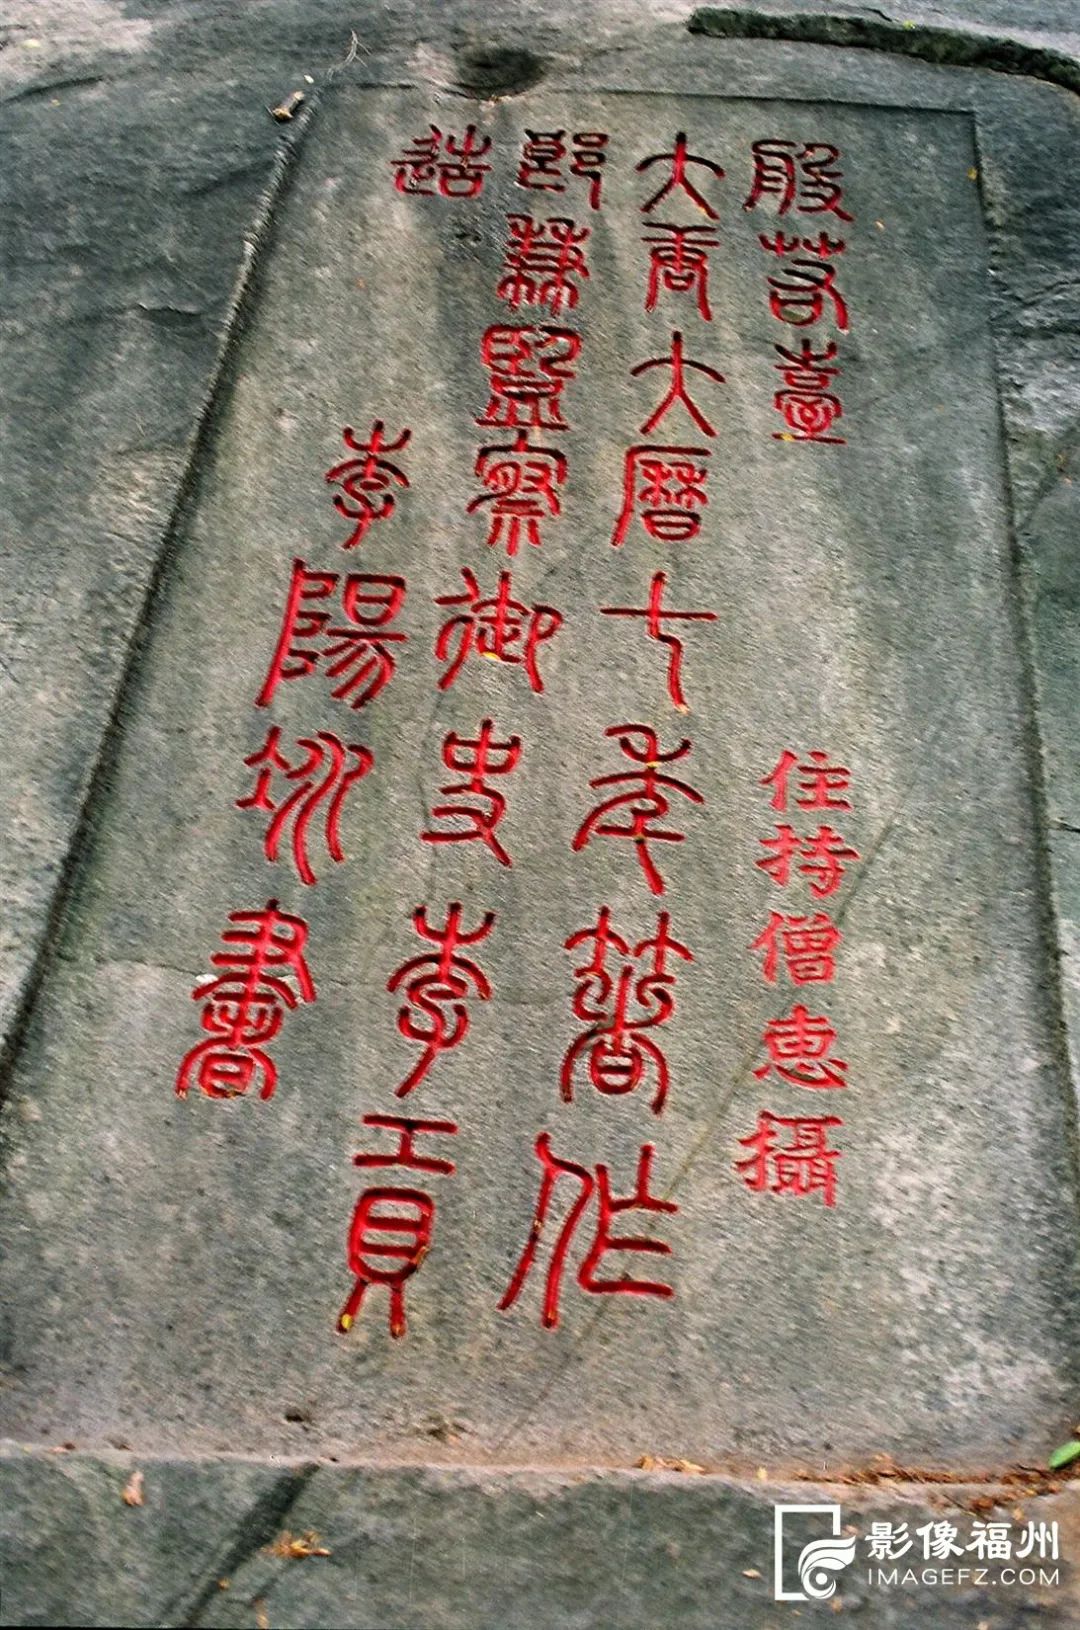 般若臺 住持僧惠攝
大唐大曆七年著作
郎兼監察御史李貢
造 李陽冰書
影像福州
IMAGEFZ.COM